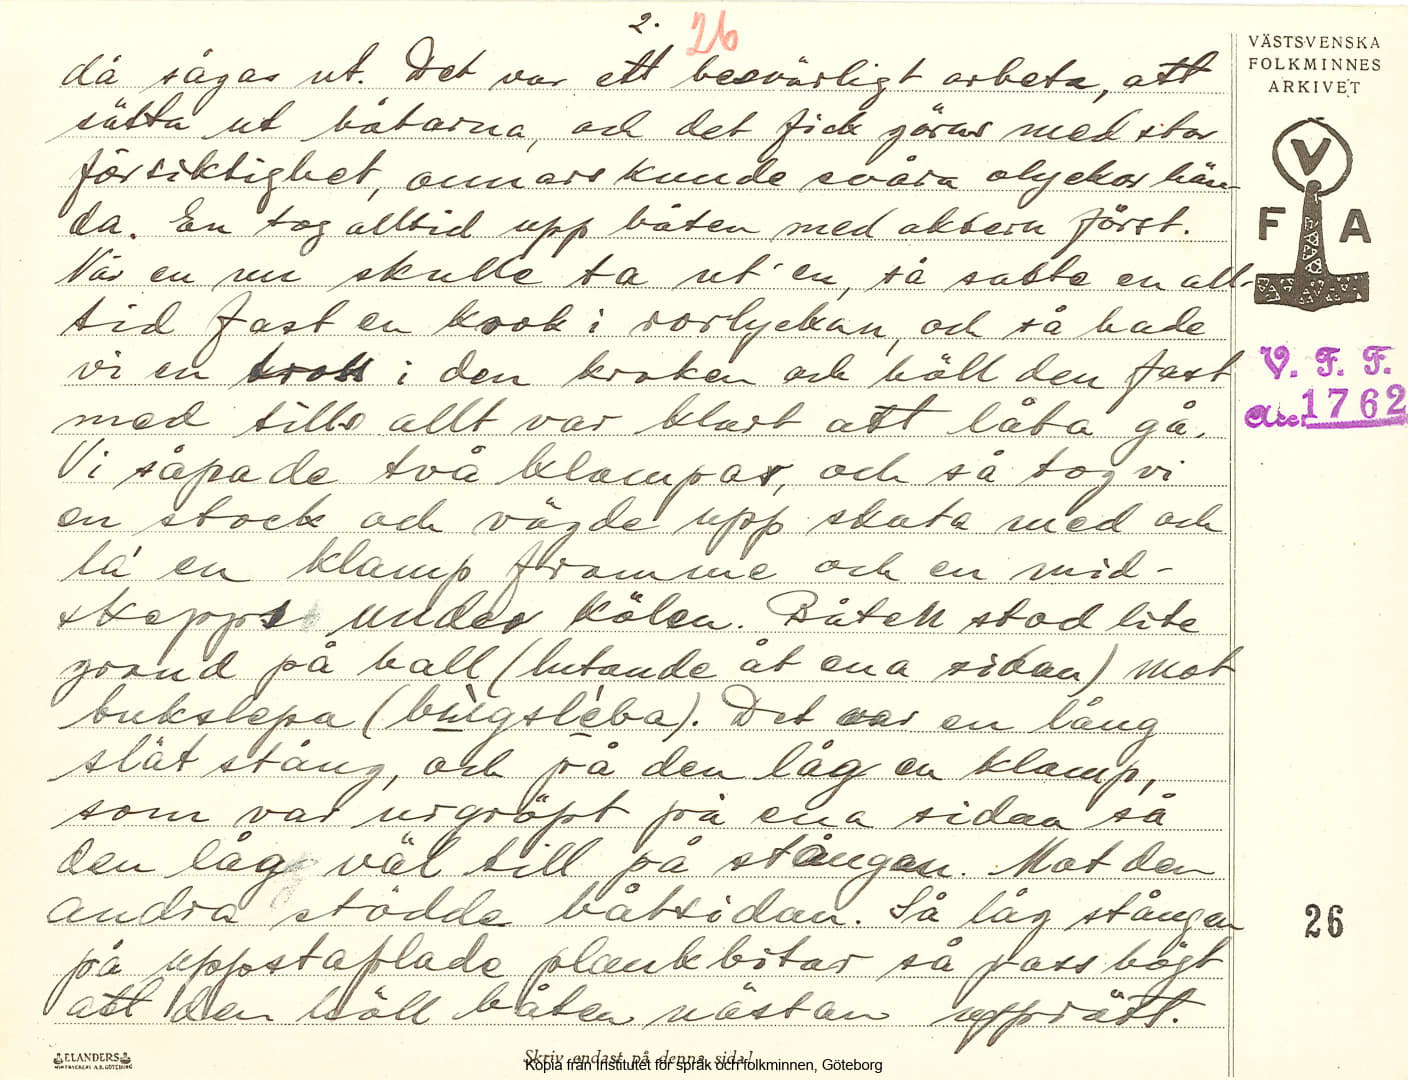 2.
26
då sågas ut. Det var ett besvärligt arbeta, att
sätta ut båtarna, och det fick göras med stor
försiktighet, annars kunde svåra olyckor hän-
da. En tog alltid upp båten med aktern först.
När en nu skulle ta ut en, så satte en all-
tid fast en krok i rorlyckan, och så hade
vi en tross i den kroken och höll den fast
med tills allt var klart att låta gå.
Vi såpade två klampar, och så tog vi
en stock och vägde upp skuta med och
la en klamp framme och en mid-
skepps under kölen. Båten stod lite
grand på hall (lutande åt ena sidan) mot
bukslepa (bùgsléba). Det var en lång
slät stång, och på den låg en klamp,
som var urgröpt på ena sidan så
den låg väl till på stången. Mot den
andra stödde båtsidan. Så låg stången
på uppstaplade plankbitar så pass högt
att den höll båten nästan upprätt.
VÄSTSVENSKA
FOLKMINNES
ARKIVET
V
F A
V. F. F.
Acc. 1762
26
ELANDERS
Skriv endast på denna sida!
Kopia från Institutet för språk och folkminnen, Göteborg